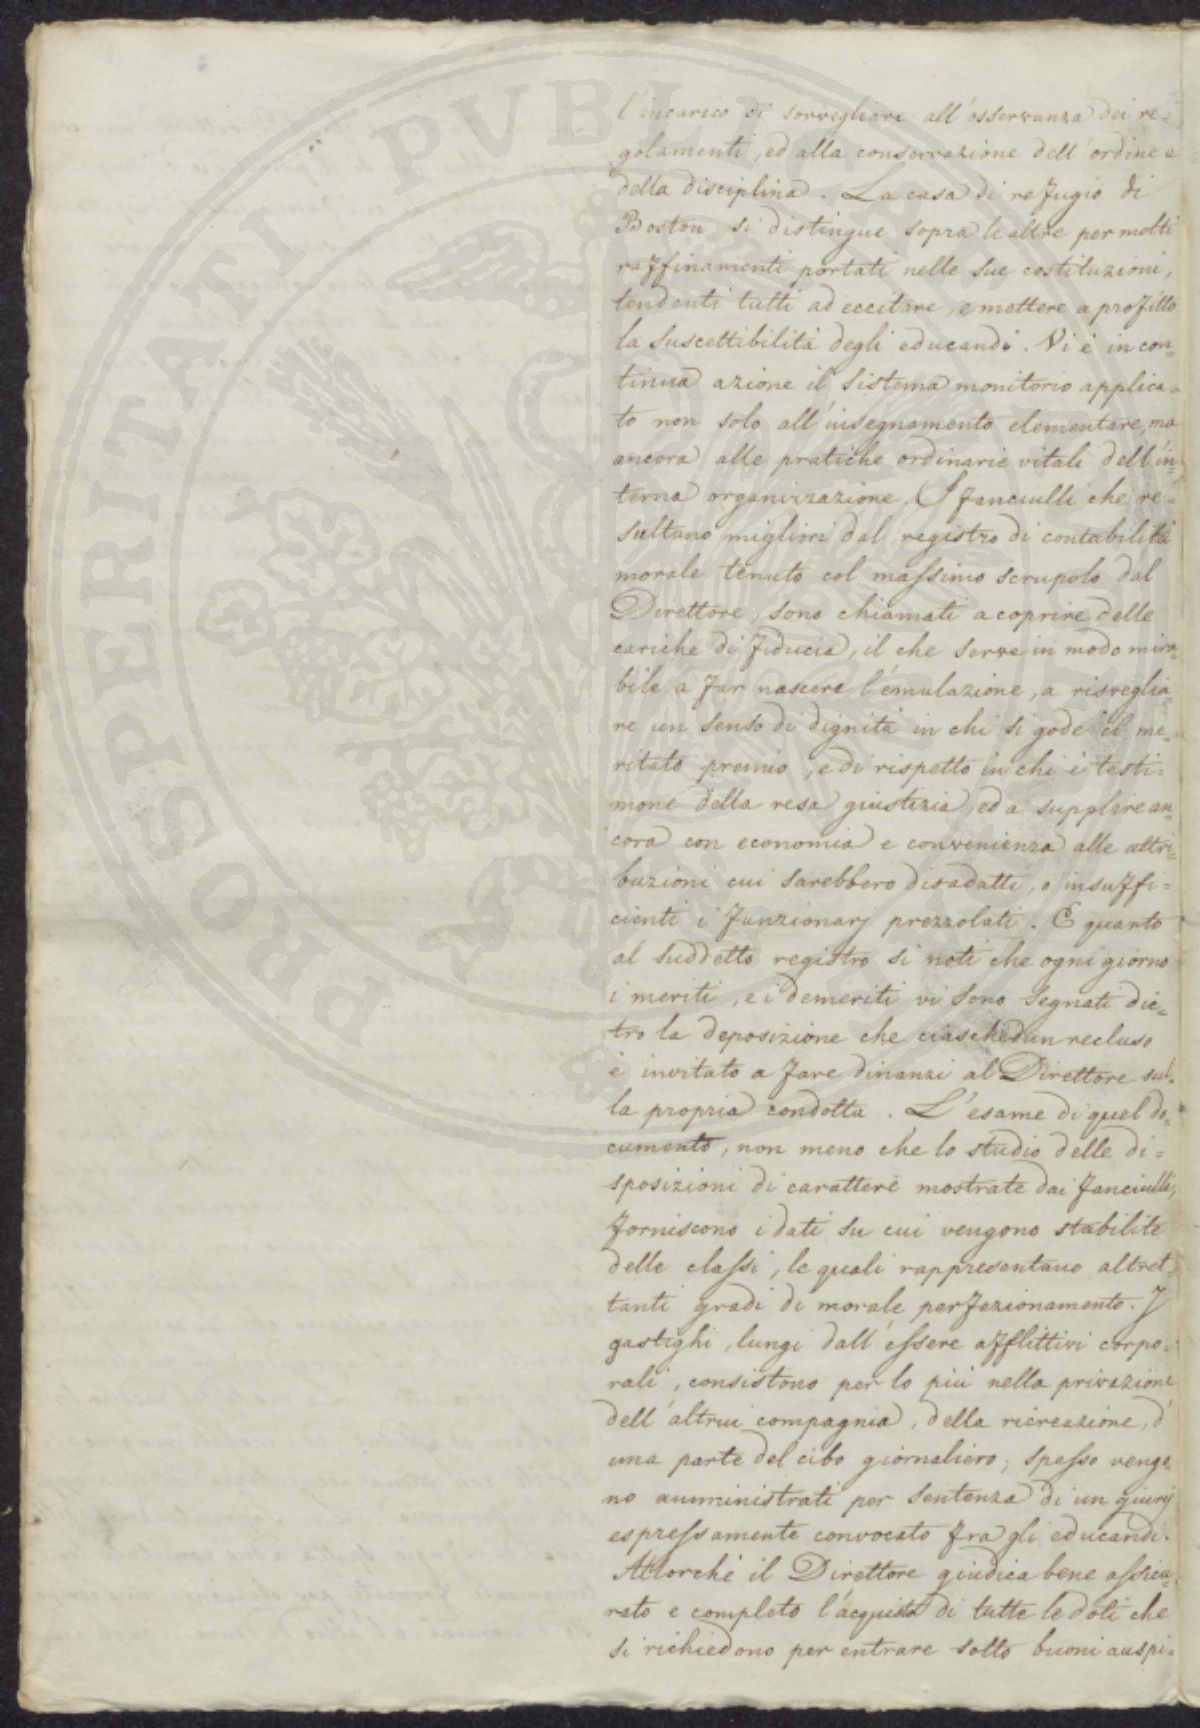 l'incarico di sorvegliare all'osservanza dei re=
golamenti, ed alla conservazione dell'ordine e
della disciplina. La casa di refugio di
Boston si distingue sopra le altre per molti
raffinamenti portati nelle sue costituzioni,
tendenti tutti ad eccitare, e mettere a profitto
la suscettibilità degli educandi. Vi è in con=
tinua azione il sistema monitorio applica=
to non solo all'insegnamento elementare, ma
ancora alle pratiche ordinarie vitali dell'in=
terna organizzazione. I fanciulli che re=
sultano migliori dal registro di contabilità
morale tenuto col massimo scrupolo dal
Direttore, sono chiamati a coprire delle
cariche di fiducia, il che serve in modo mira=
bile a far nascere l'emulazione, a risveglia=
re un senso di dignità in chi si gode il me=
ritato premio, e di rispetto in chi è testi=
mone della resa giustizia, ed a supplire an=
cora con economia e convenienza alle attri=
buzioni cui sarebbero disadatti, o insuffi=
cienti i funzionarj prezzolati. E quanto
al suddetto registro si noti che ogni giorno
i meriti, e i demeriti vi sono segnati die=
tro la deposizione che ciaschedun recluso
è invitato a fare dinanzi al Direttore sul=
la propria condotta. L'esame di quel do=
cumento, non meno che lo studio delle di=
sposizioni di carattere mostrate dai fanciulli,
forniscono i dati su cui vengono stabilite
delle classi, le quali rappresentano altret=
tanti gradi di morale perfezionamento. I
gastighi, lungi dall'essere afflittivi corpo=
rali, consistono per lo più nella privazione
dell'altrui compagnia, della ricreazione, d'
una parte del cibo giornaliero; spesso vengo=
no amministrati per sentenza di un giurì
espressamente convocato fra gli educandi.
Allorchè il Direttore giudica bene assicu=
rato e completo l'acquisto di tutte le doti che
si richiedono per entrare sotto buoni auspi=
PROSPERITATI PVBLICAE